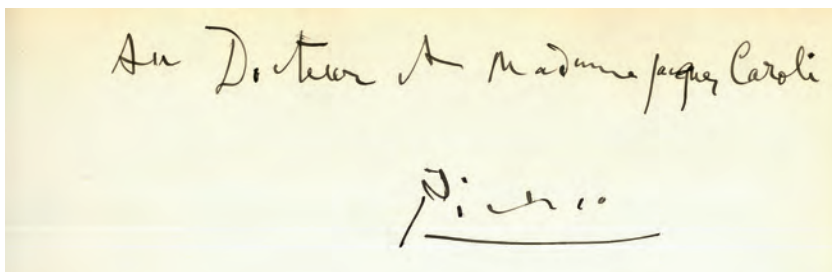 Au Docteur et Madame Jacques Caroli
Picasso